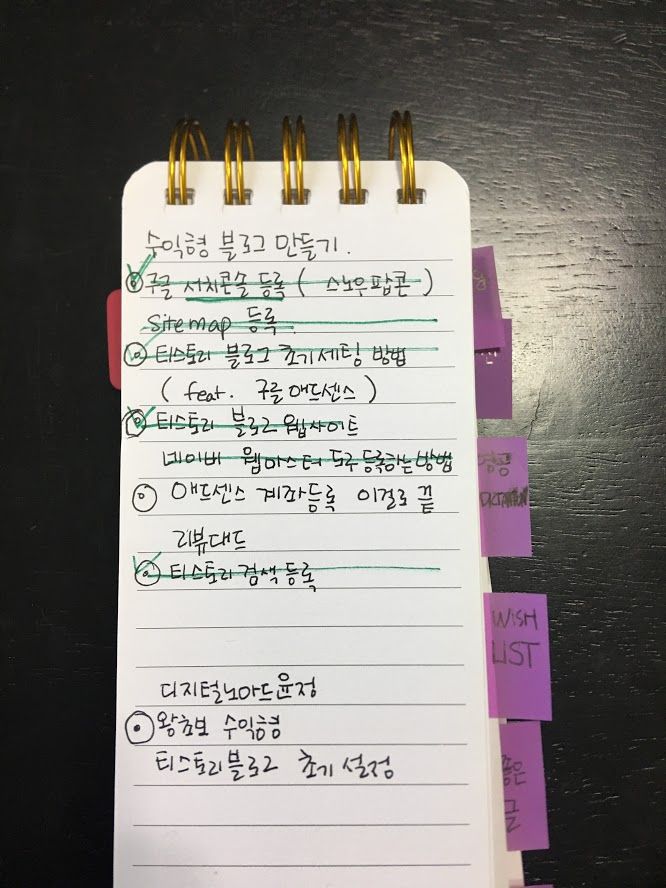 수익형 블로그 만들기.
구글 서치콘솔 등록 ( 스노우팝콘 )
sitemap 등록.
티스토리 블로그 초기세팅 방법
( feat. 구글애드센스 )
티스토리 블로그 웹사이트
네이버 웹마스터 도구 등록하는 방법
애드센스 계좌등록 이걸로 끝
리뷰대드
티스토리 검색 등록
디지털노아드윤정
왕초보 수익형
티스토리블로그 초기 설정
WISH
LIST
좋은
글